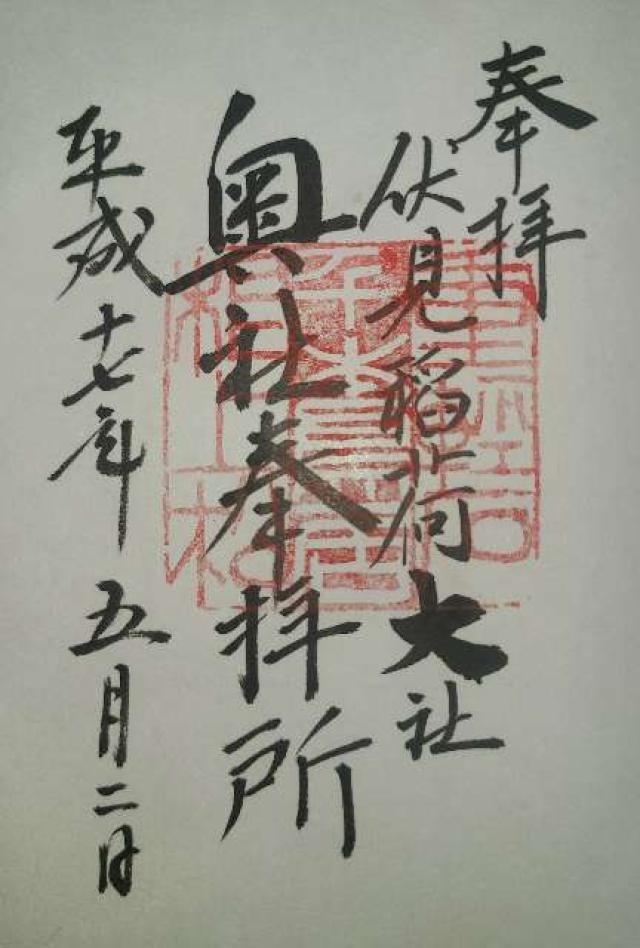 奉拝
伏見稲荷大社
奥社奉拝所
平成十七年五月二日